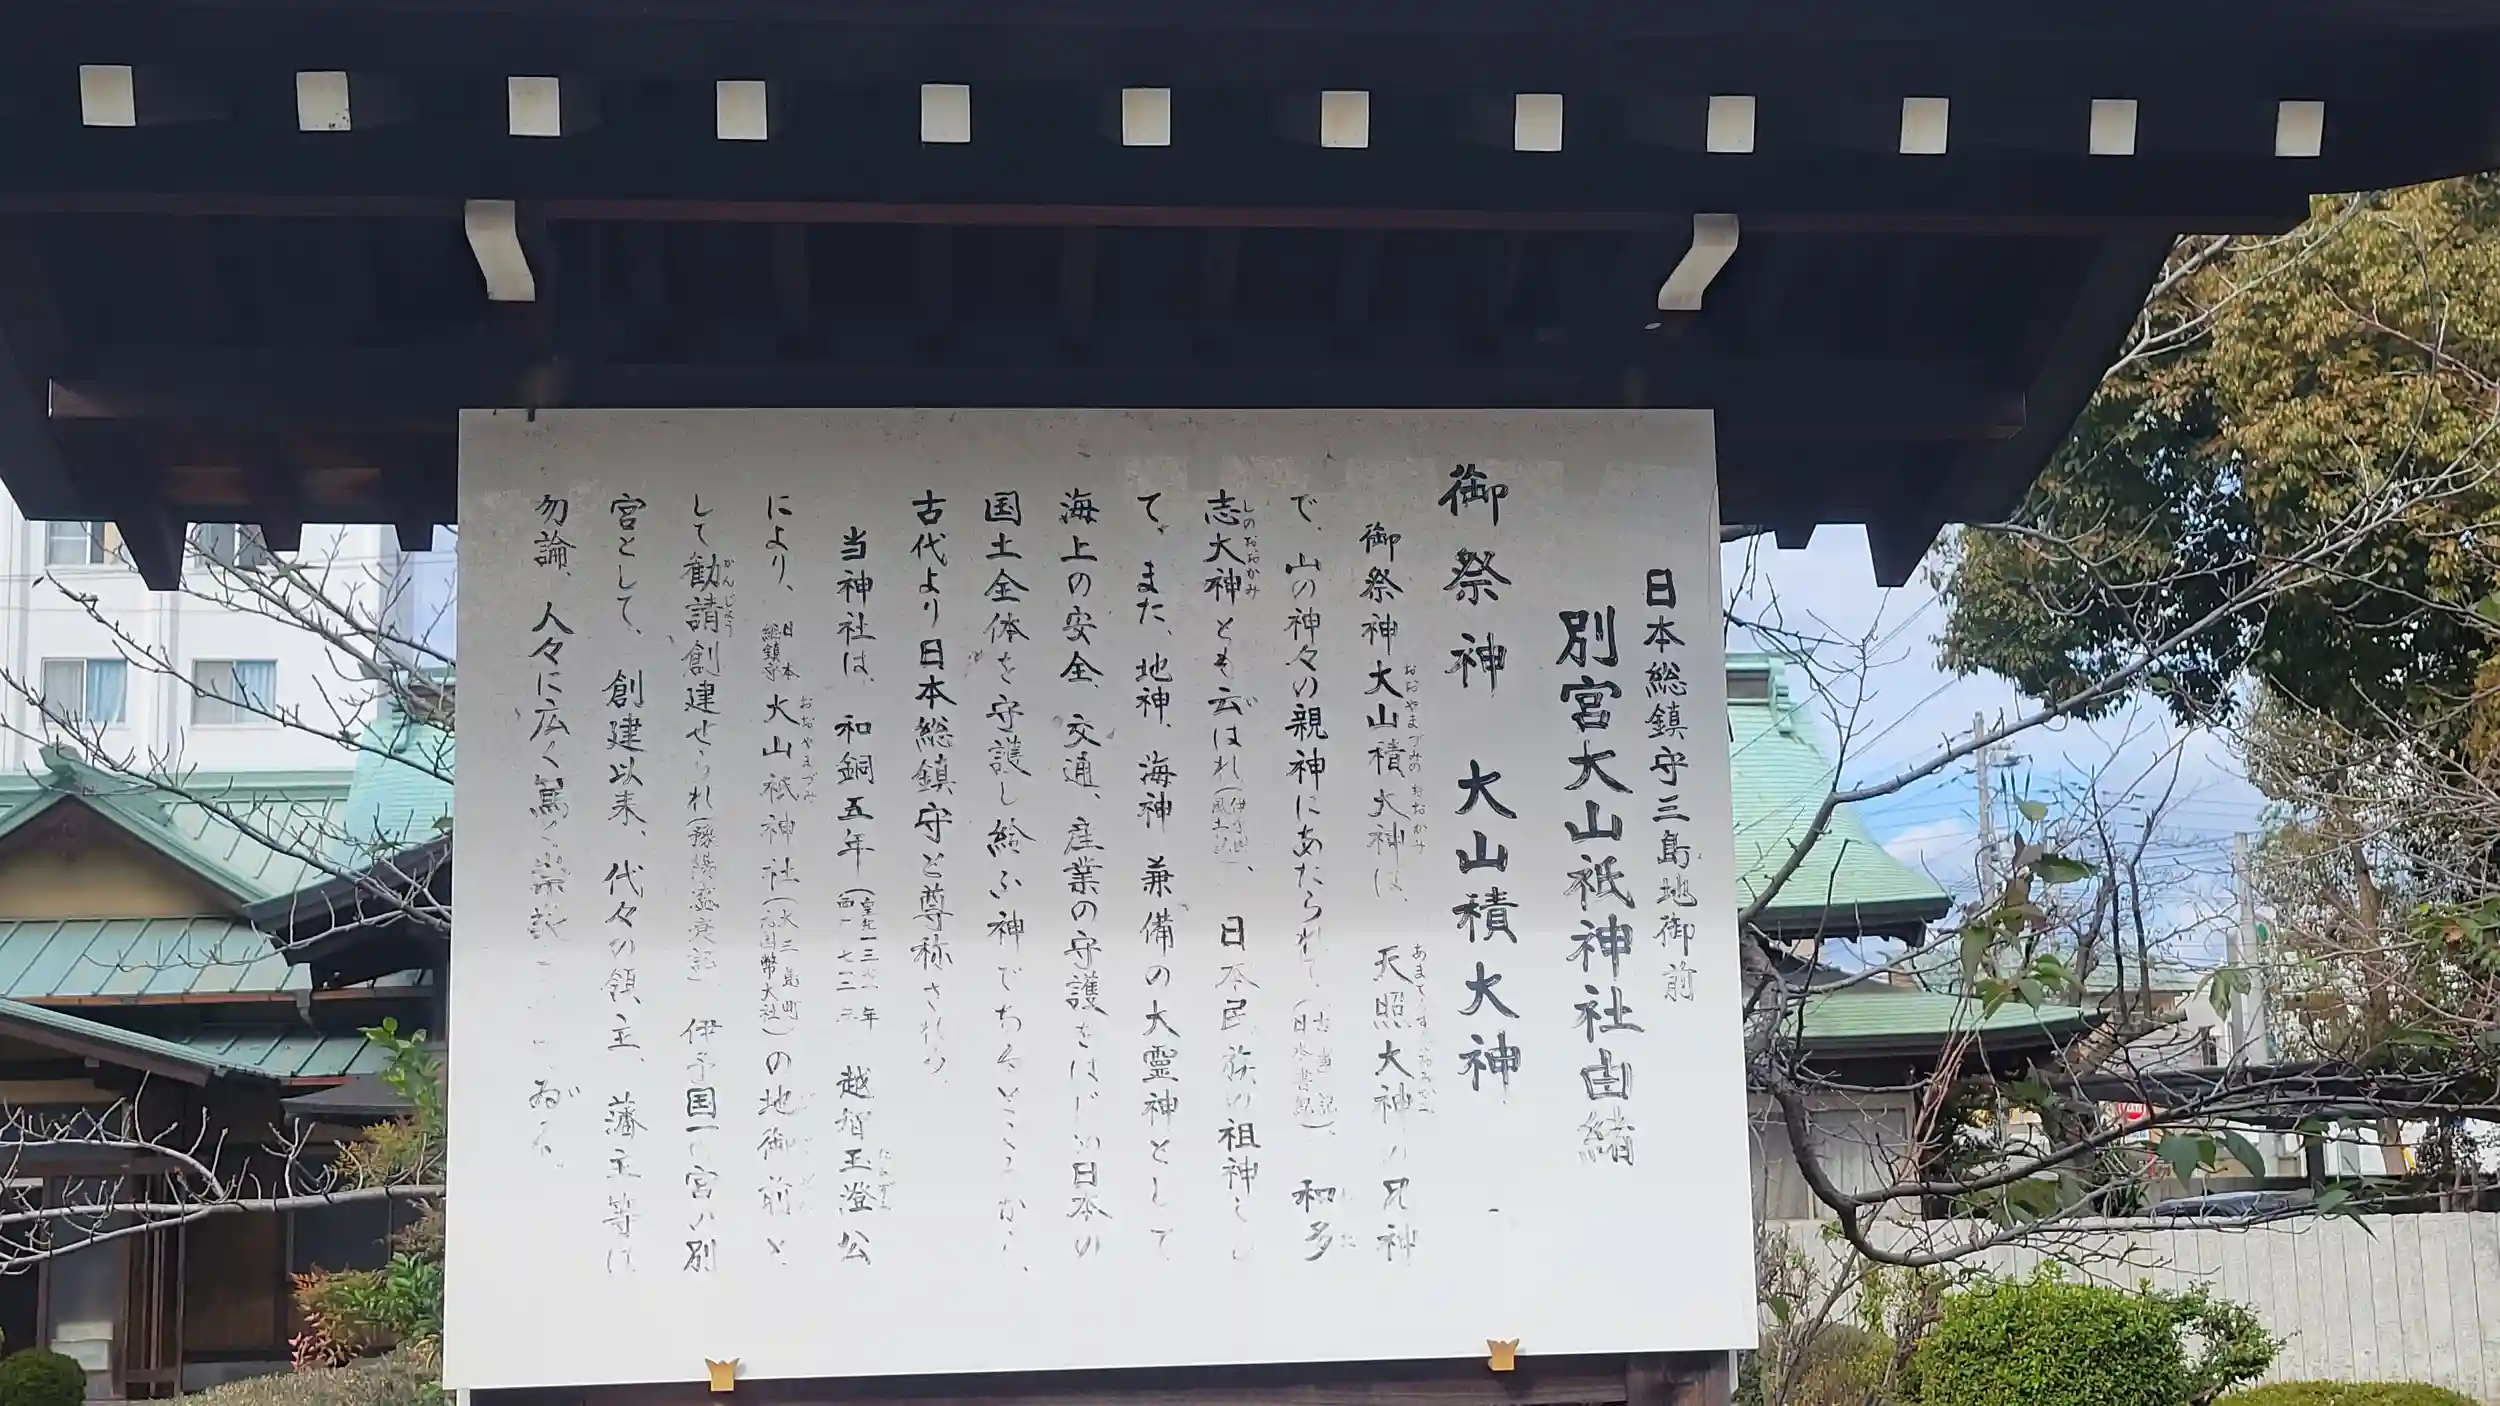 日本総鎮守三島地御前
別宮大山祇神社由緒
御祭神 大山積大神
御祭神大山積大神は、天照大神の兄神
おおやまづみのおおかみ
で、山の神々の親神にあたられて、(古事記 日本書紀)、和多
志大神とも云はれ(伊予国風土記)、日本民族の祖神とし
しのおおかみ
て、また、地神、海神兼備の大霊神として
海上の安全、交通、産業の守護をはじめ日本の
国土全体を守護し給ふ神であるところから、
古代より日本総鎮守と尊称された。
当神社は、和銅五年(皇紀一三七二年 西一七一二年)越智玉澄公
により、日本総鎮守大山祇神社(大三島町 元国幣大社)の地御前と
おおやまづみ
して勧請創建せられ(豫陽盛衰記)、伊予国一の宮の別
かんじょう
宮として、創建以来、代々の領主、藩主等は
勿論、人々に広く篤く崇